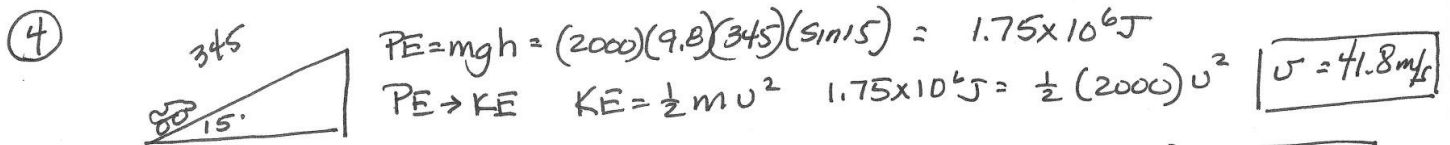 ④ 345 PE=mgh = (2000)(9.8)(345)(sin15) = 1.75x10⁶J
15° PE→KE KE=½mv² 1.75x10⁶J = ½(2000)v² v=41.8m/s